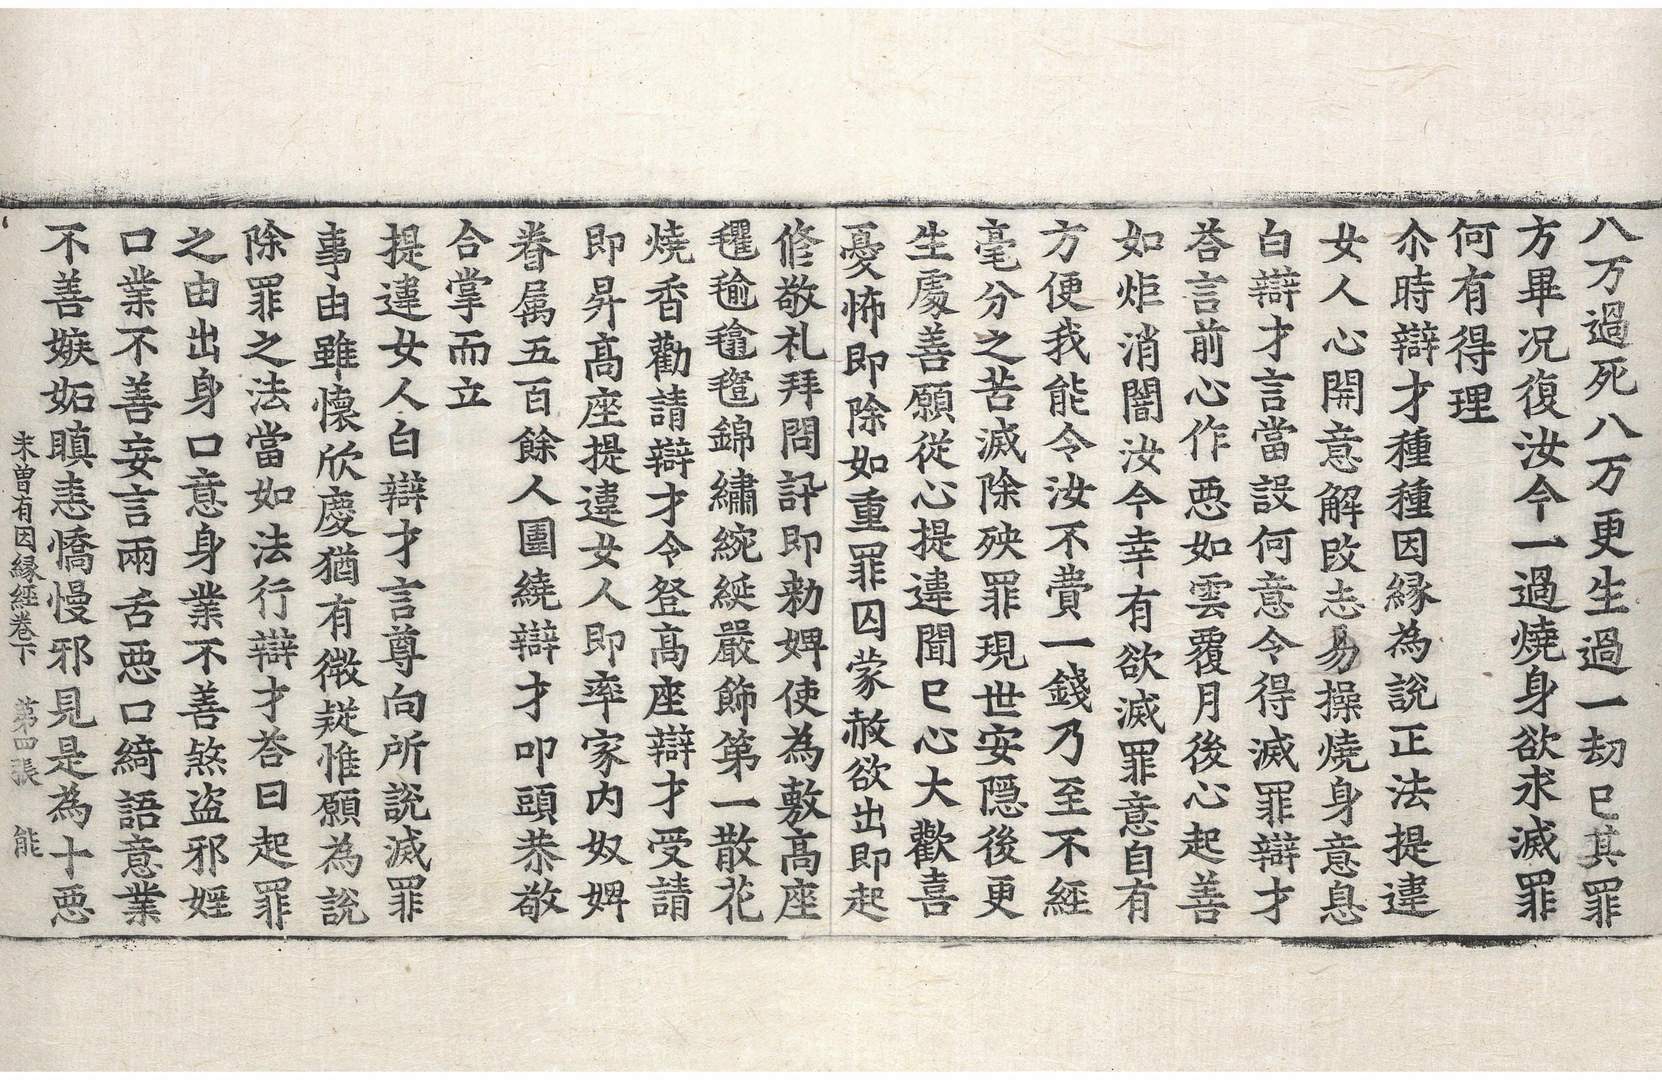 八万過死八万更生過一劫已其罪
方畢况復汝今一過燒身欲求滅罪
何有得理
尒時辯才種種因縁為說正法提違
女人心開意解改志易操燒身意息
白辯才言當設何意令得滅罪辯才
荅言前心作惡如雲覆月後心起善
如炬消闇汝今幸有欲滅罪意自有
方便我能令汝不費一錢乃至不經
毫分之苦滅除殃罪現世安隠後更
生處善願從心提違聞已心大歡喜
憂怖即除如重罪囚蒙赦欲出即起
修敬礼拜問訊即勑婢使為敷髙座
氍毹毾㲪錦繡綩綖嚴飾第一散花
燒香勸請辯才令登髙座辯才受請
即昇髙座提違女人即率家内奴婢
眷属五百餘人圍繞辯才叩頭恭敬
合掌而立
提違女人白辯才言尊向所說滅罪
事由雖懷欣慶猶有微疑惟願為說
除罪之法當如法行辯才荅曰起罪
之由出身口意身業不善煞盗邪婬
口業不善妄言兩舌惡口綺語意業
不善嫉妬瞋恚憍慢邪見是為十惡
未曽有因縁經卷下 第四張 能